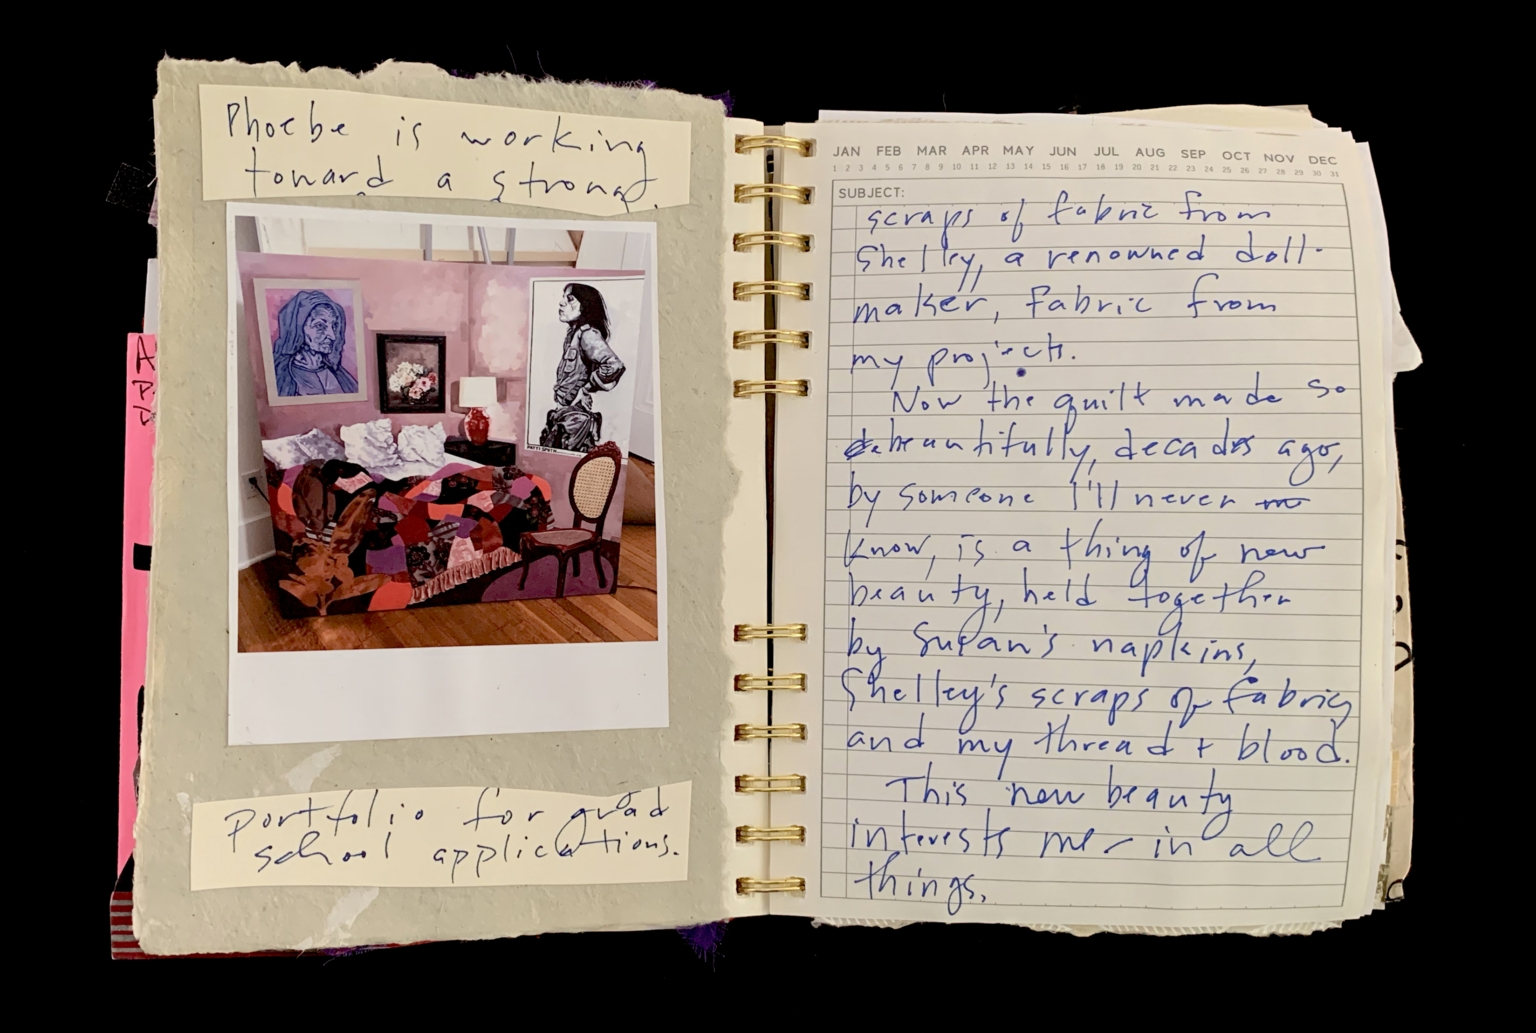 Phoebe is working
toward a strong
PATTI SMITH
portfolio for grad
school applications.
JAN FEB MAR APR MAY JUN JUL AUG SEP OCT NOV DEC
1 2 3 4 5 6 7 8 9 10 11 12 13 14 15 16 17 18 19 20 21 22 23 24 25 26 27 28 29 30 31
SUBJECT:
scraps of fabric from
Shelley, a renowned doll-
maker, fabric from
my projects.
Now the quilt made so
beautifully, decades ago,
by someone I'll never
know, is a thing of new
beauty, held together
by Susan's napkins,
Shelley's scraps of fabric,
and my thread + blood.
This new beauty
interests me - in all
things.